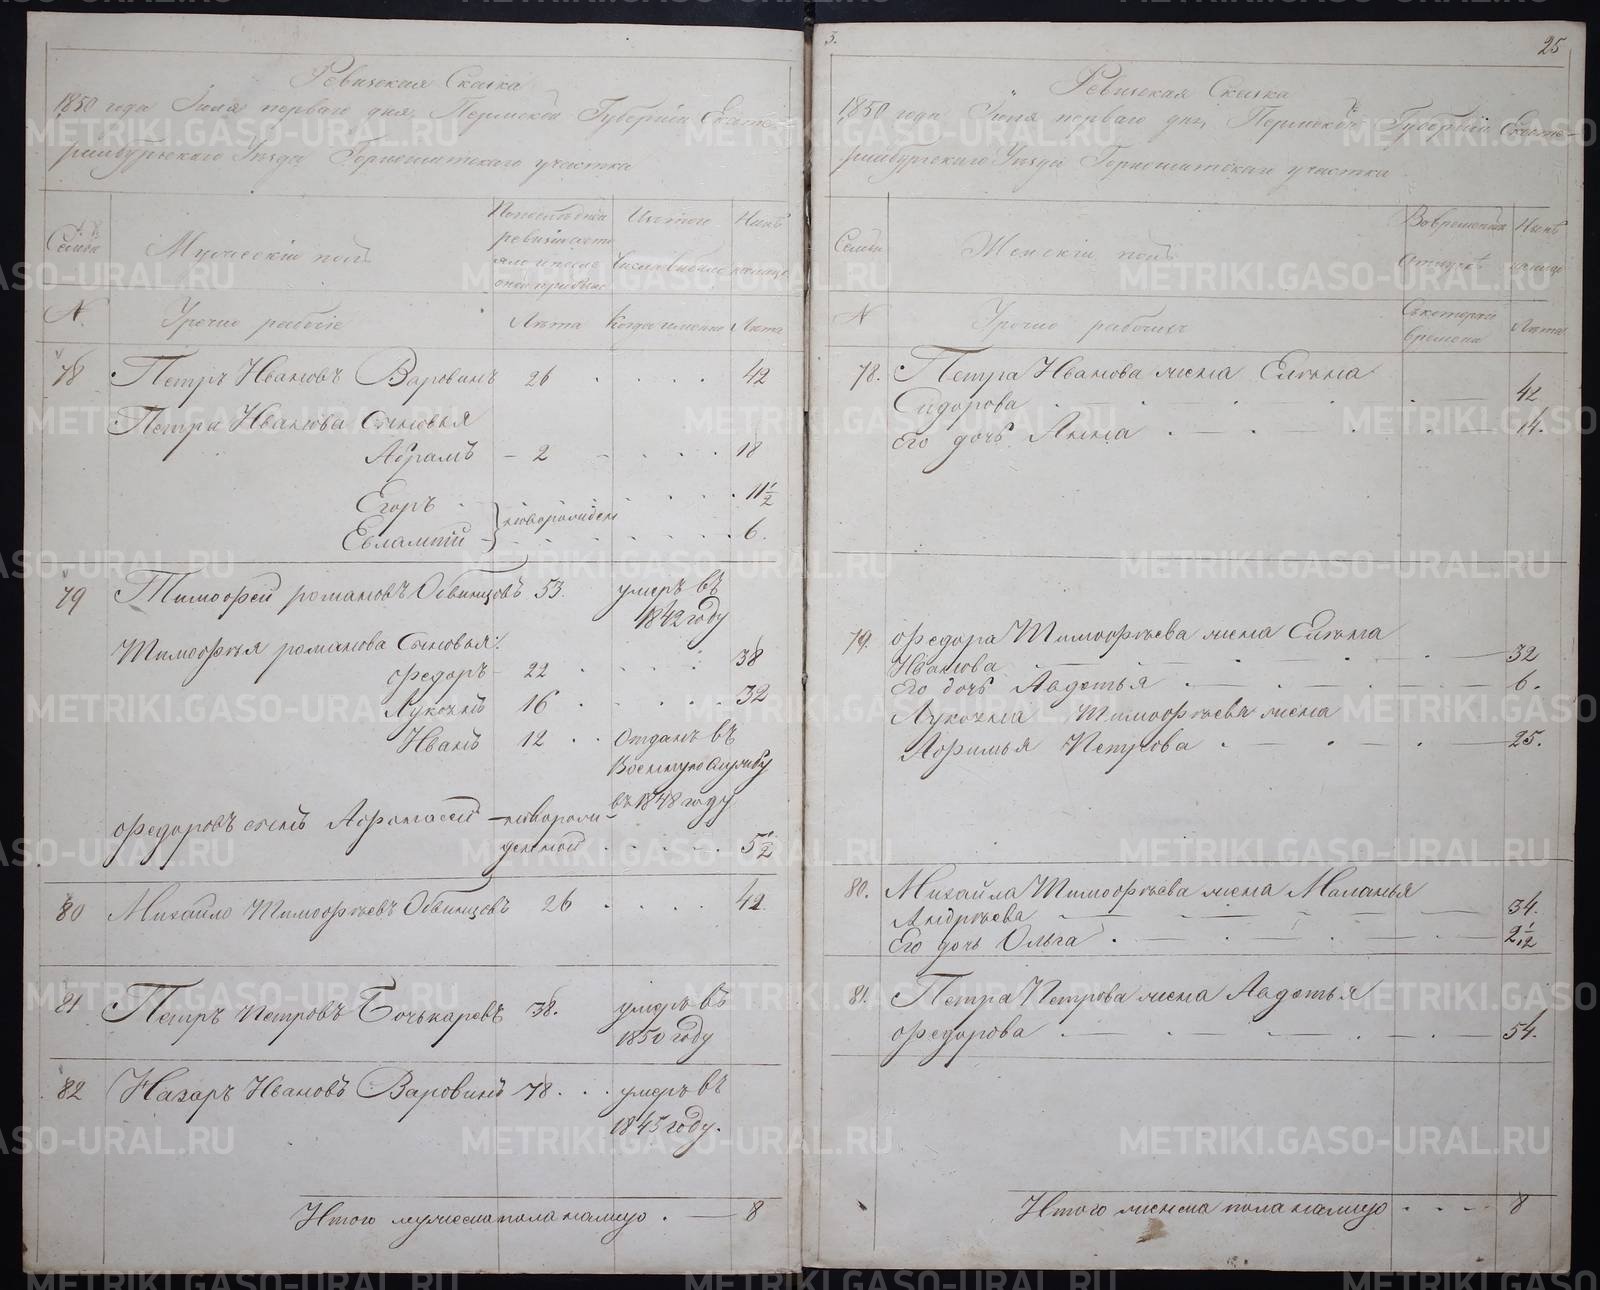 Ревизская Сказка
1850 года Июля перваго дня, Пермской Губерніи Екате-
ринбургскаго Уезда Горнощитскаго участка
Семьи
Мужескій полъ
По последней
ревизіи состо
яло и после
оной прибыло
Изъ того
числа выбыло
Ныне
на лицо
N.
Урочно рабочіе
Лета
Когда именно
Лета
78
Петръ Ивановъ Варовинъ 26 . . . . 42
Петра Иванова Сыновья
Абрамъ – 2 – . . . . 18
Егоръ . . . . . 11 1/2
новорожден
Евлампій . . . . . 6.
79
Тимофей романовъ Обвинцовъ 53. умеръ въ
1842 году
Тимофея романова Сыновья:
Федоръ 22 . . . . 38
Лукоянъ 16 . . . . 32
Иванъ 12 . . Отданъ въ
Военную службу
въ 1848 году
Федоровъ сынъ Афонасей – новорож-
денной . . . . . 5 1/2
80
Михайло Тимофеевъ Обвинцовъ 26 . . . . 42
81
Петръ Петровъ Бочькаревъ 38. умеръ въ
1850 году
82
Назаръ Ивановъ Варовинъ 78 . . . умеръ въ
1845 году.
Итого мужеска пола налицо . — 8
3.
25
Ревизская Сказка
1850 года Июля перваго дня, Пермской Губерніи Екате-
ринбургскаго Уезда Горнощитскаго участка
Семьи
Женскій полъ
Во временной
отлучке
Ныне
на лицо
N
Урочно рабочихъ
Съ котораго
времени
Лета
78.
Петра Иванова жена Елена
Сидорова 42
Его дочь Анна 14.
79.
Федора Тимофеева жена Елена
Иванова 32
Его дочь Авдотья 6.
Лукояна Тимофеева жена
Афимья Петрова 25.
80.
Михайла Тимофеева жена Маланья
Андреева 34.
Его дочь Ольга 2 1/2
81.
Петра Петрова жена Авдотья
Федорова 54.
Итого женска пола налицо . . . . 8
METRIKI.GASO-URAL.RU